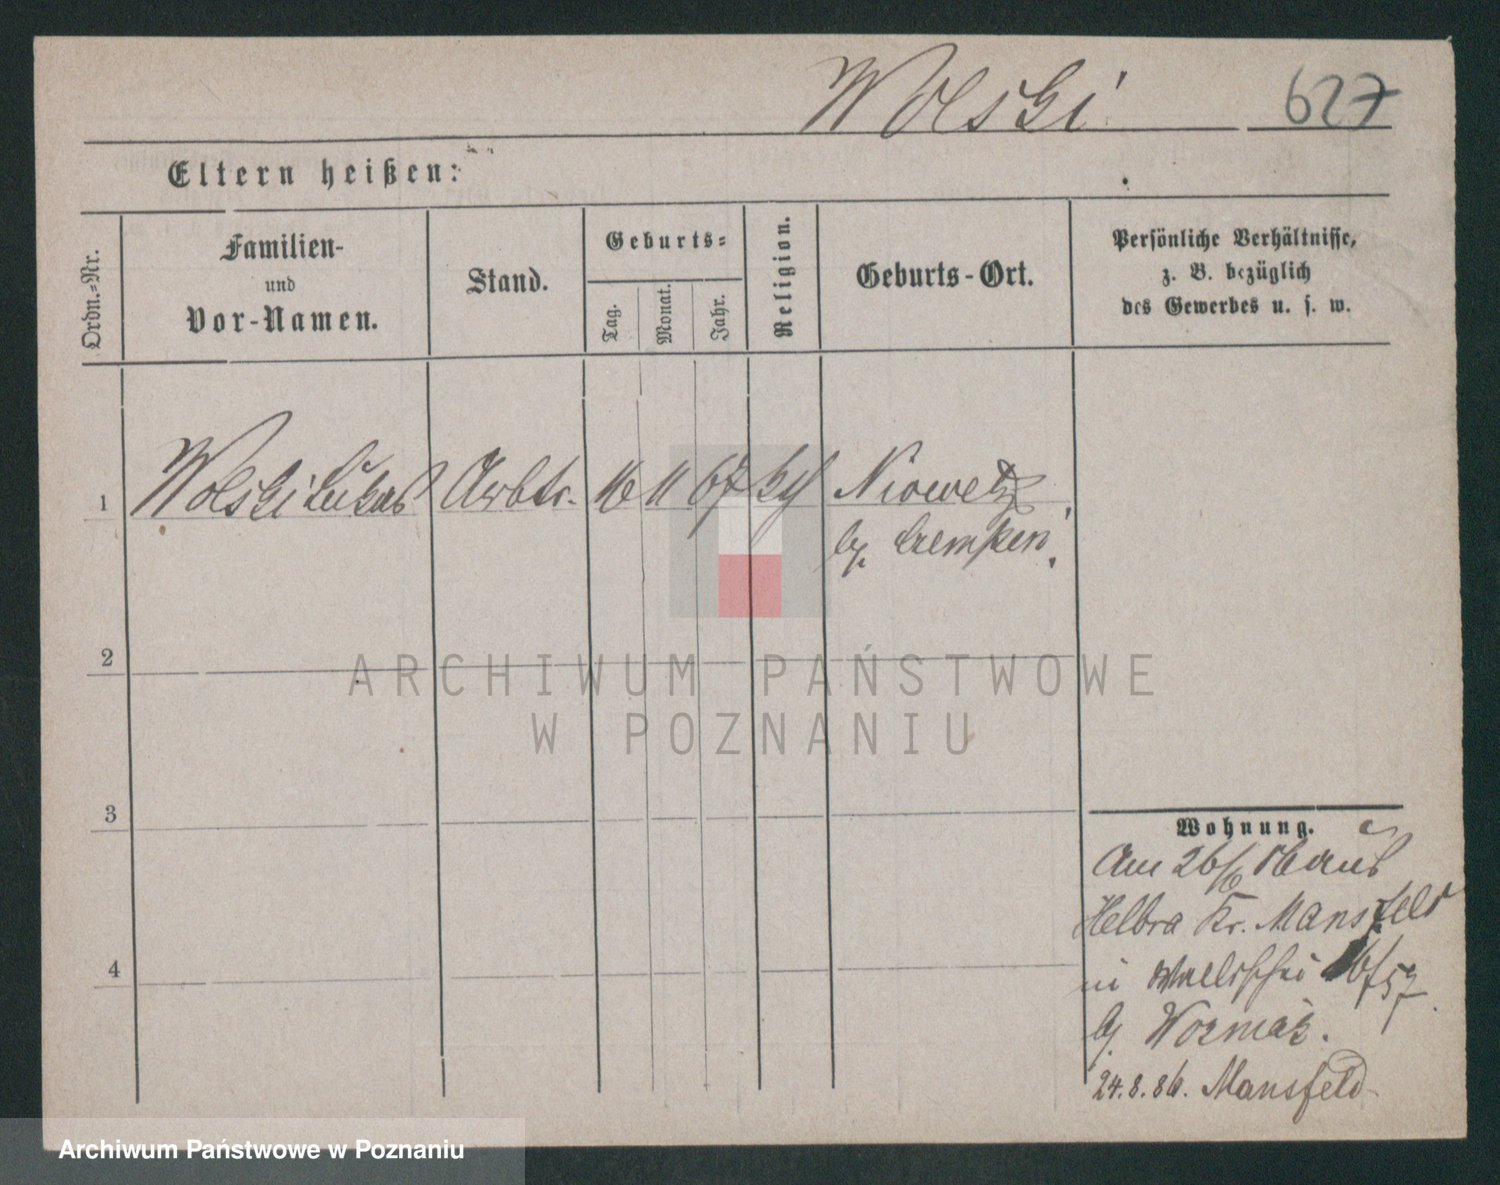 Wolski
627
Eltern heißen:
Ordn.-Nr.
Familien-
und
Vor-Namen.
Stand.
Geburts-
Tag.
Monat.
Jahr.
Religion.
Geburts-Ort.
Persönliche Verhältnisse,
z. B. bezüglich
des Gewerbes u. s. w.
1 Wolski Lukas Arbtr. 16 11 67 kth
2
3
4
Wohnung.
Am 26/6 86 aus
Helbra Kr. Mansfeld
in Wallischei 57
24.8.86. Mansfeld
ARCHIWUM PAŃSTWOWE
W POZNANIU
Archiwum Państwowe w Poznaniu